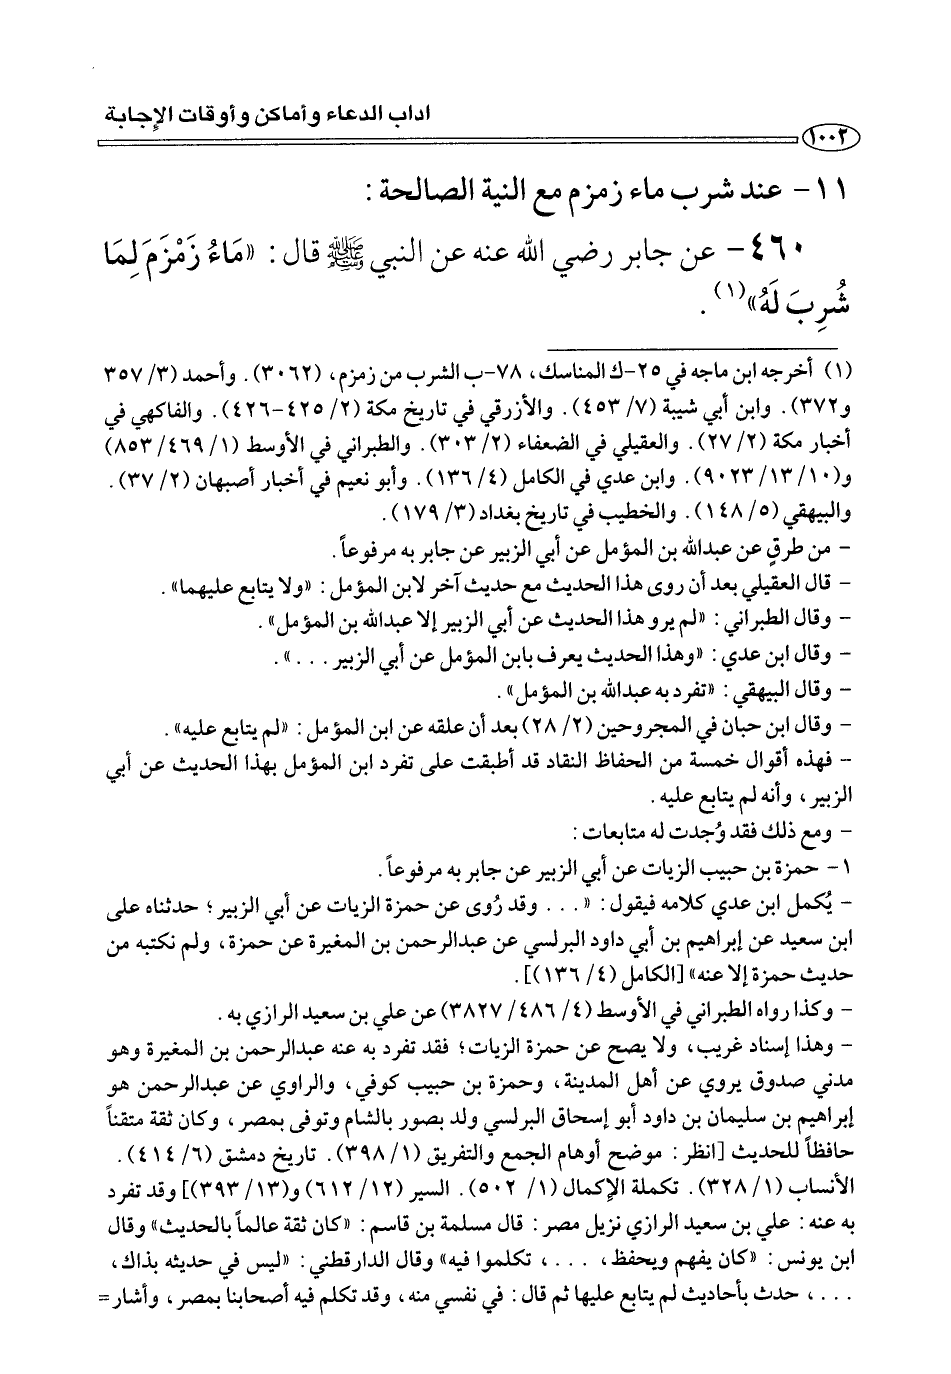 اداب الدعاء وأماكن وأوقات الإجابة
١٠٠٢
١١- عند شرب ماء زمزم مع النية الصالحة :
٤٦٠- عن جابر رضي الله عنه عن النبي ﷺ قال : «مَاءُ زَمْزَمَ لِمَا
شُرِبَ لَهُ»(١) .
(١) أخرجه ابن ماجه في ٢٥-ك المناسك، ٧٨-ب الشرب من زمزم، (٣٠٦٢). وأحمد (٣/ ٣٥٧
و٣٧٢). وابن أبي شيبة (٧/ ٤٥٣). والأزرقي في تاريخ مكة (٢/ ٤٢٥-٤٢٦). والفاكهي في
أخبار مكة (٢/ ٢٧). والعقيلي في الضعفاء (٢/ ٣٠٣). والطبراني في الأوسط (١/ ٤٦٩/ ٨٥٣)
و(١٠/ ١٣/ ٩٠٢٣). وابن عدي في الكامل (٤/ ١٣٦). وأبو نعيم في أخبار أصبهان (٢/ ٣٧).
والبيهقي (٥/ ١٤٨). والخطيب في تاريخ بغداد (٣/ ١٧٩).
- من طرقٍ عن عبدالله بن المؤمل عن أبي الزبير عن جابر به مرفوعاً.
- قال العقيلي بعد أن روى هذا الحديث مع حديث آخر لابن المؤمل : «ولا يتابع عليهما» .
- وقال الطبراني : «لم يرو هذا الحديث عن أبي الزبير إلا عبدالله بن المؤمل» .
- وقال ابن عدي : «وهذا الحديث يعرف بابن المؤمل عن أبي الزبير . . .» .
- وقال البيهقي : «تفرد به عبدالله بن المؤمل» .
- وقال ابن حبان في المجروحين (٢/ ٢٨) بعد أن علقه عن ابن المؤمل : «لم يتابع عليه» .
- فهذه أقوال خمسة من الحفاظ النقاد قد أطبقت على تفرد ابن المؤمل بهذا الحديث عن أبي
الزبير ، وأنه لم يتابع عليه .
- ومع ذلك فقد وُجدت له متابعات :
١- حمزة بن حبيب الزيات عن أبي الزبير عن جابر به مرفوعاً.
- يُكمل ابن عدي كلامه فيقول : « . . . وقد رُوى عن حمزة الزيات عن أبي الزبير ؛ حدثناه على
ابن سعيد عن إبراهيم بن أبي داود البرلسي عن عبدالرحمن بن المغيرة عن حمزة، ولم نكتبه من
حديث حمزة إلا عنه» [الكامل (٤/ ١٣٦)] .
- وكذا رواه الطبراني في الأوسط (٤/ ٤٨٦/ ٣٨٢٧) عن علي بن سعيد الرازي به .
- وهذا إسناد غريب، ولا يصح عن حمزة الزيات؛ فقد تفرد به عنه عبدالرحمن بن المغيرة وهو
مدني صدوق يروي عن أهل المدينة، وحمزة بن حبيب كوفي، والراوي عن عبدالرحمن هو
إبراهيم بن سليمان بن داود أبو إسحاق البرلسي ولد بصور بالشام وتوفى بمصر ، وكان ثقة متقناً
حافظاً للحديث [انظر : موضح أوهام الجمع والتفريق (١/ ٣٩٨). تاريخ دمشق (٦/ ٤١٤) .
الأنساب (١/ ٣٢٨). تكملة الإكمال (١/ ٥٠٢). السير (١٢/ ٦١٢) و(١٣/ ٣٩٣)] وقد تفرد
به عنه : علي بن سعيد الرازي نزيل مصر : قال مسلمة بن قاسم : «كان ثقة عالماً بالحديث» وقال
ابن يونس : «كان يفهم ويحفظ ، . . . ، تكلموا فيه» وقال الدارقطني : «ليس في حديثه بذاك،
. . . ، حدث بأحاديث لم يتابع عليها ثم قال : في نفسي منه، وقد تكلم فيه أصحابنا بمصر ، وأشار=